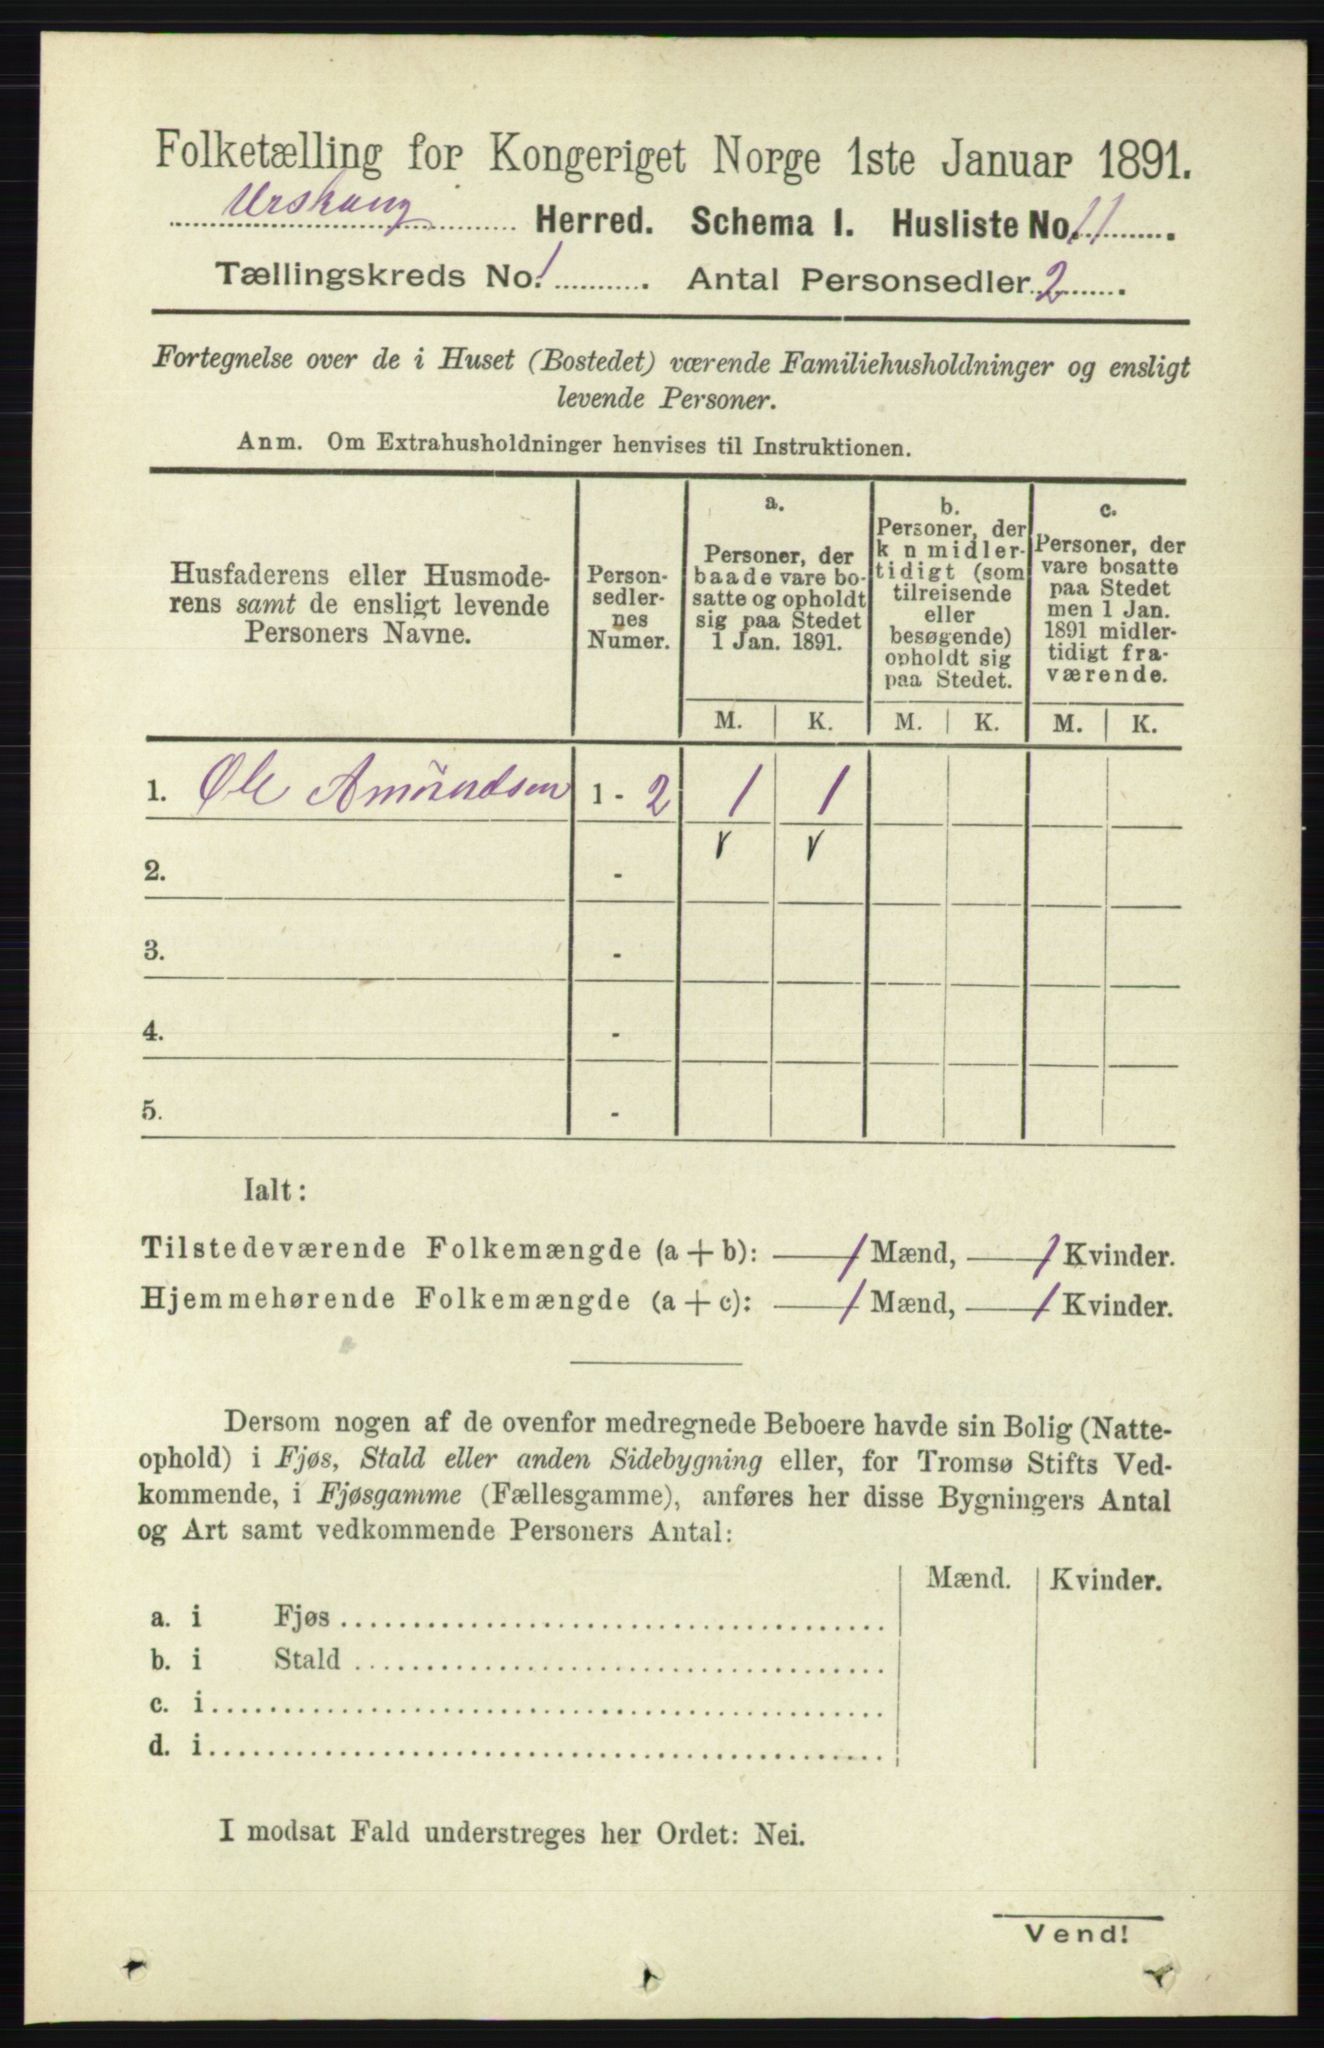 Folketælling for Kongeriget Norge 1ste Januar 1891.
Urskoug Herred. Schema I. Husliste No. 11.
Tællingskreds No. 1. Antal Personsedler 2.
Fortegnelse over de i Huset (Bostedet) værende Familiehusholdninger og ensligt
levende Personer.
Anm. Om Extrahusholdninger henvises til Instruktionen.
Husfaderens eller Husmode-
rens samt de ensligt levende
Personers Navne.
Person-
sedler-
nes
Numer.
a.
Personer, der
baade vare bo-
satte og opholdt
sig paa Stedet
1 Jan. 1891.
b.
Personer, der
k n midler-
tidigt (som
tilreisende
eller
besøgende)
opholdt sig
paa Stedet.
c.
Personer, der
vare bosatte
paa Stedet
men 1 Jan.
1891 midler-
tidigt fra-
værende.
M. K. M. K. M. K.
1. Ole Amundsen 1 - 2 1 1
2. -
3. -
4. -
5. -
Ialt:
Tilstedeværende Folkemængde (a + b): 1 Mænd, 1 Kvinder.
Hjemmehørende Folkemængde (a + c): 1 Mænd, 1 Kvinder.
Dersom nogen af de ovenfor medregnede Beboere havde sin Bolig (Natte-
ophold) i Fjøs, Stald eller anden Sidebygning eller, for Tromsø Stifts Ved-
kommende, i Fjøsgamme (Fællesgamme), anføres her disse Bygningers Antal
og Art samt vedkommende Personers Antal:
Mænd. Kvinder.
a. i Fjøs
b. i Stald
c. i
d. i
I modsat Fald understreges her Ordet: Nei.
Vend!